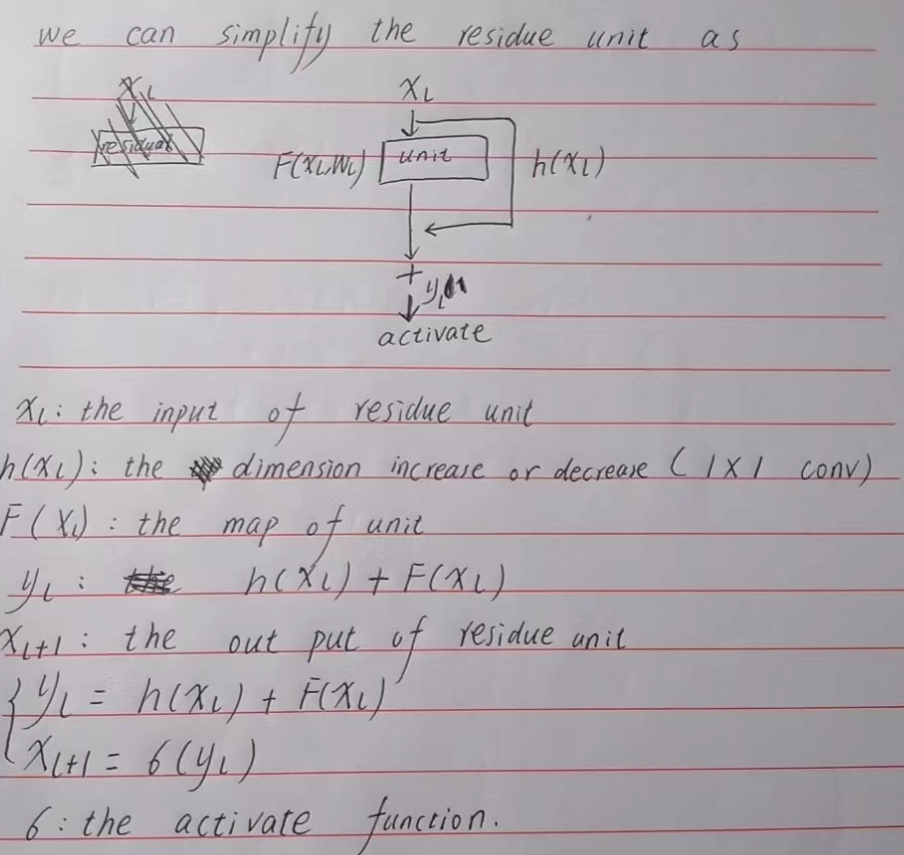 we can simplify the residue unit as
x_L
residual
x_L
F(x_L,W_L) unit h(x_L)
+
y_L
activate
x_L: the input of residue unit
h(x_L): the dimension increase or decrease (1x1 conv)
F(x_L): the map of unit
y_L: h(x_L) + F(x_L)
x_{L+1}: the out put of residue unit
{ y_L = h(x_L) + F(x_L)
x_{L+1} = 6(y_L)
6: the activate function.